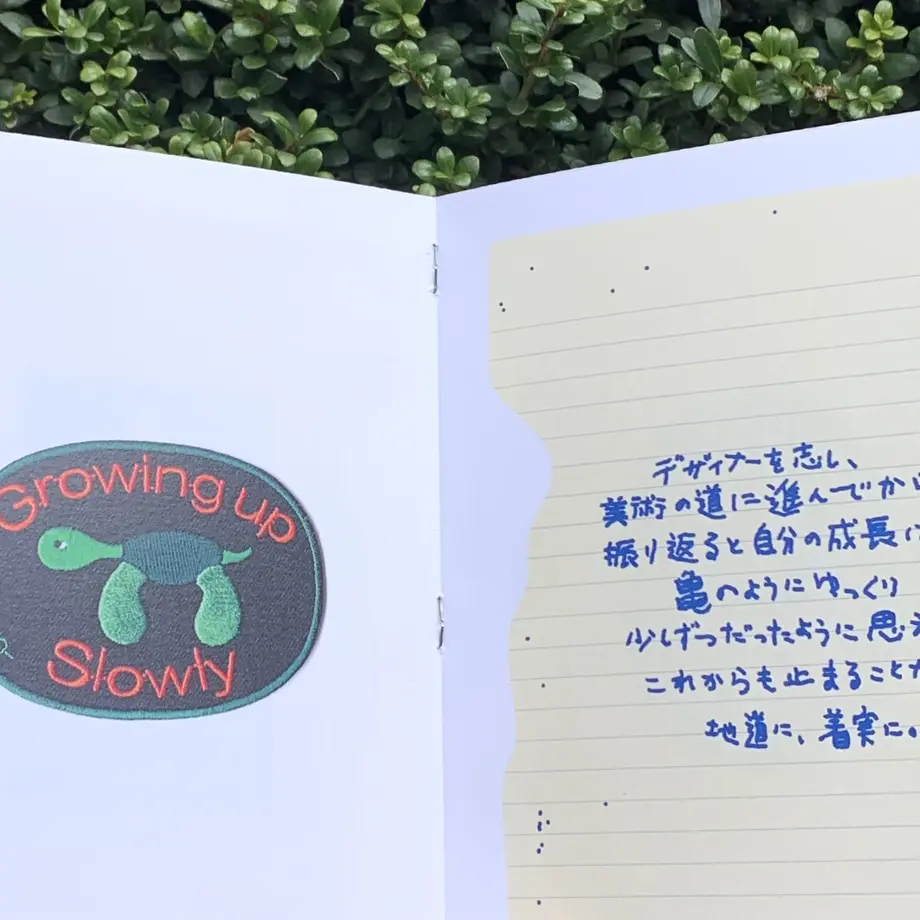 Growing up
Slowly
デザイナーを志し、
美術の道に進んでから
振り返ると自分の成長は
亀のようにゆっくり
少しずつだったように思う
これからも止まることな
地道に、着実に。